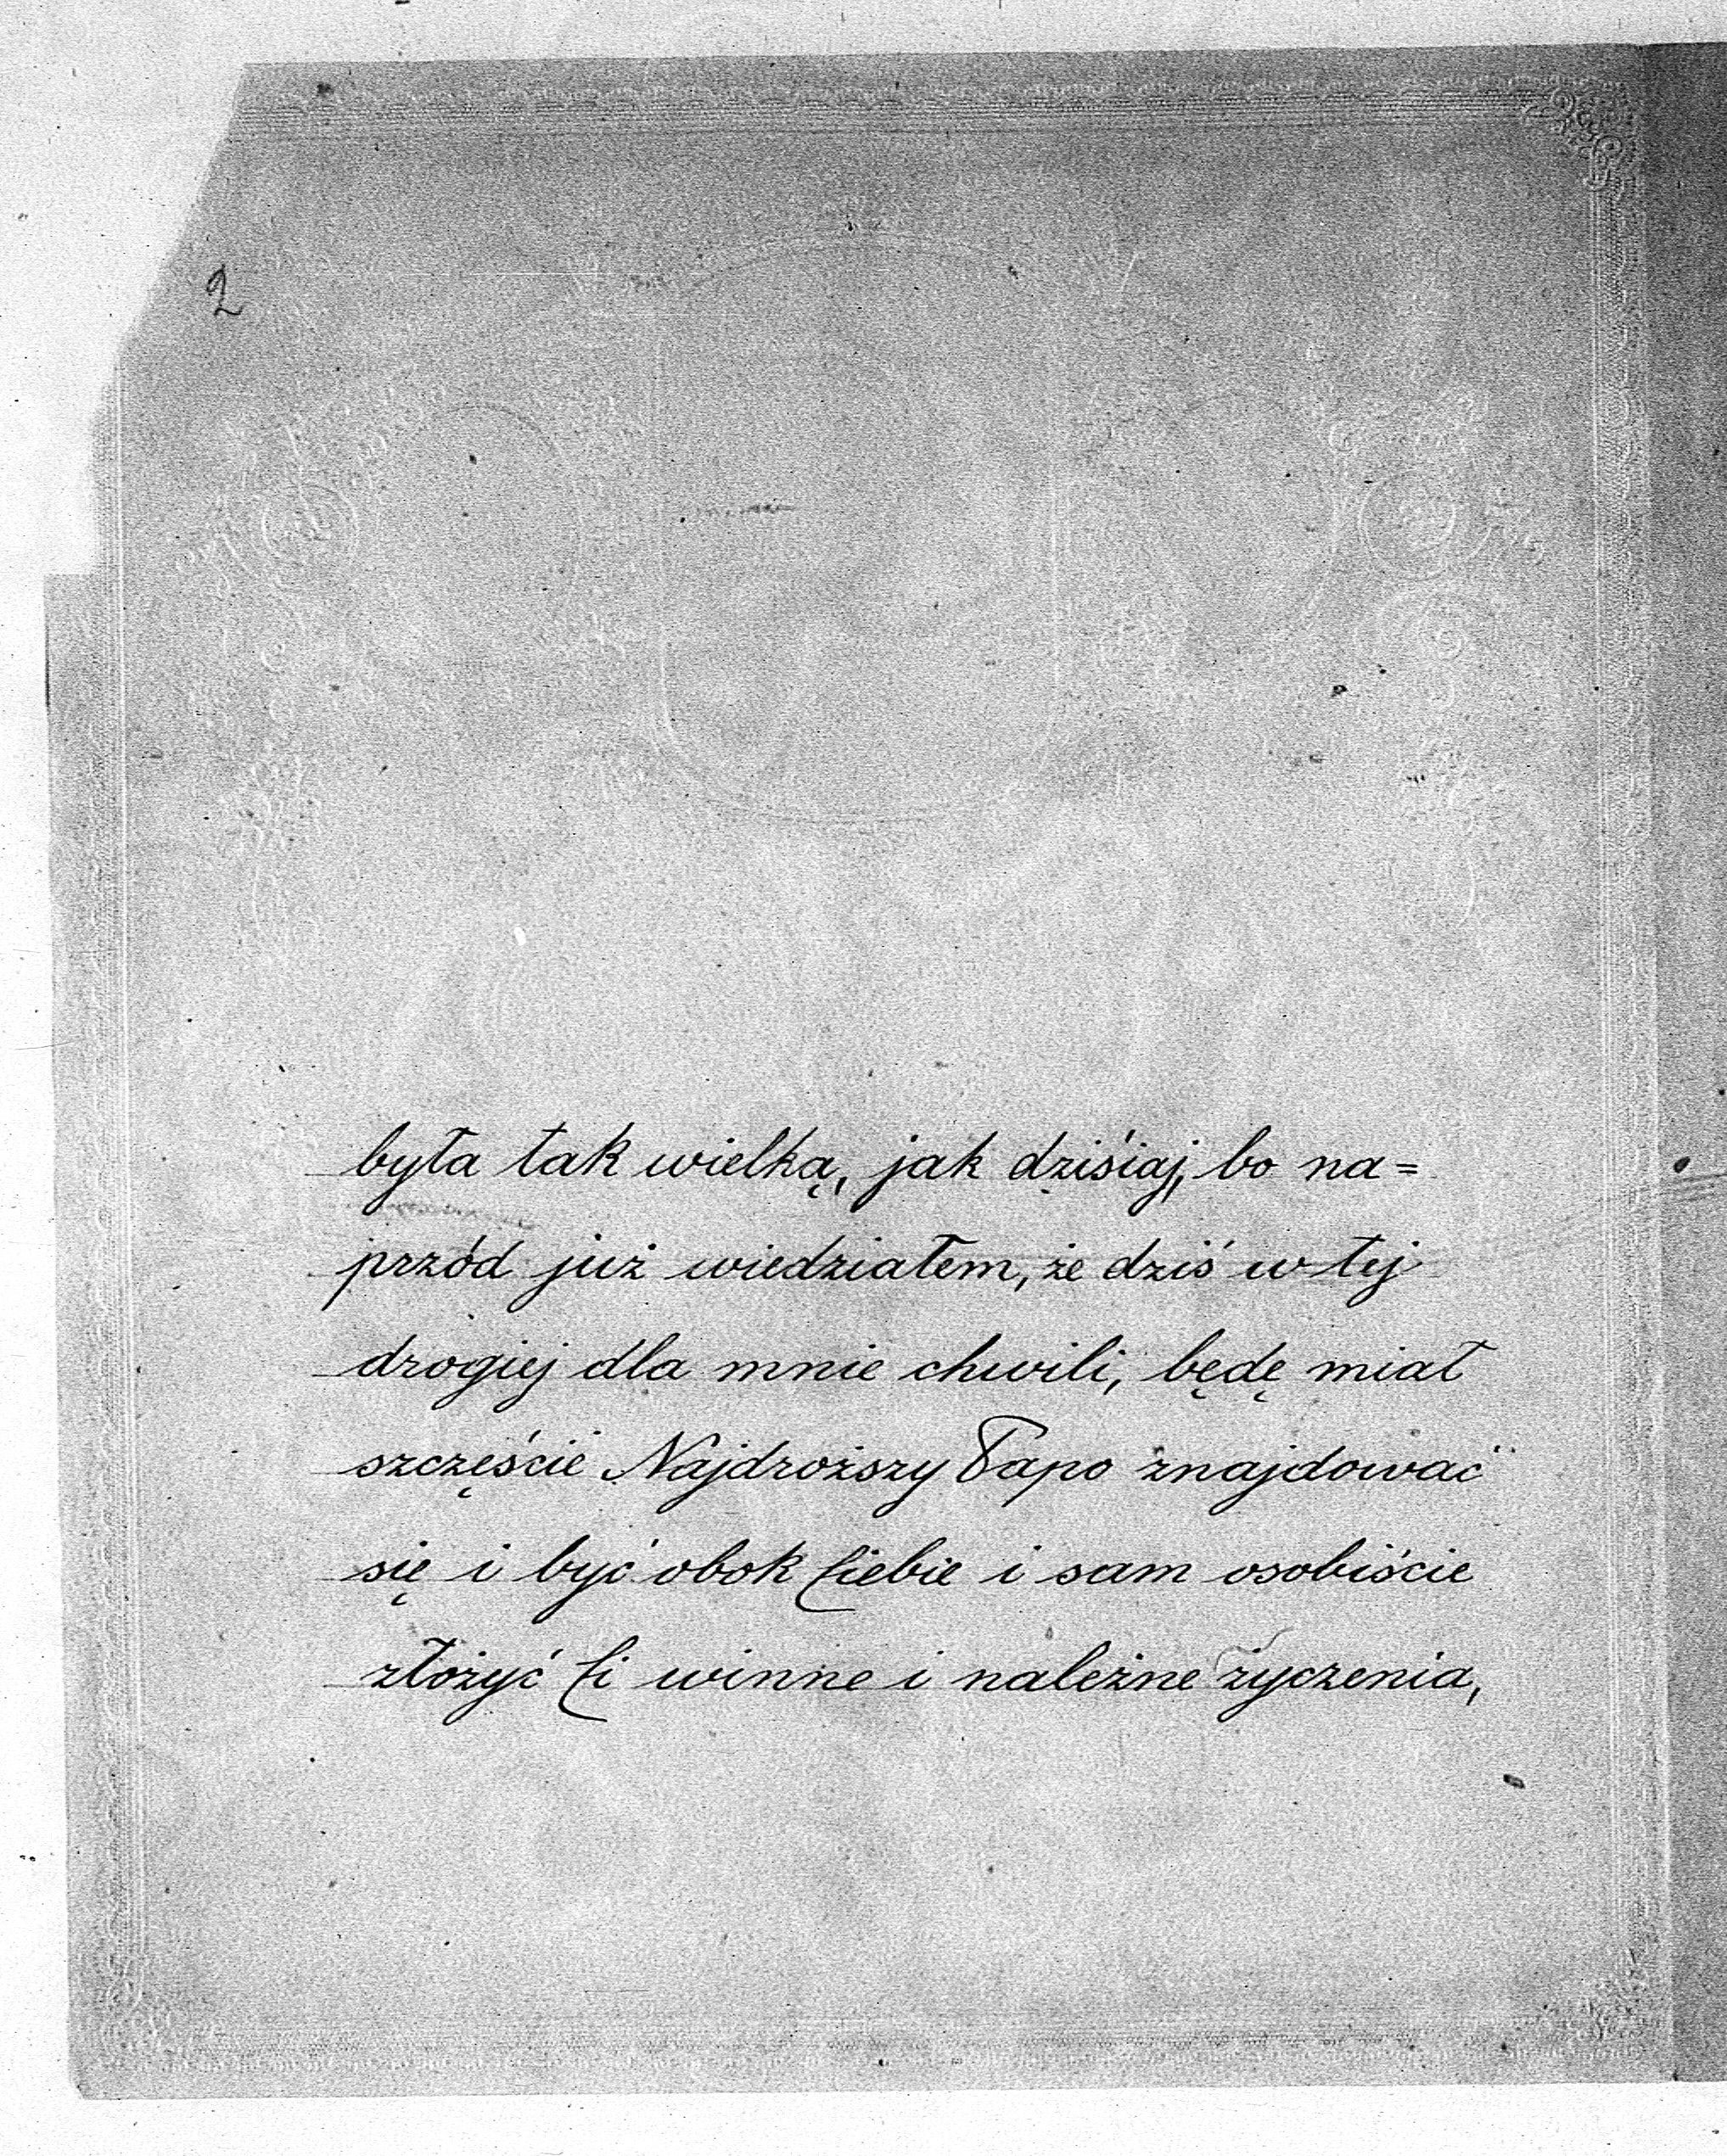 2
była tak wielką, jak dzisiaj, bo na=
przód już wiedziałem, że dziś w tej
drogiej dla mnie chwili, będę miał
szczęście Najdroższy Papo znajdować
się i być obok Ciebie i sam osobiście
złożyć Ci winne i należne życzenia,